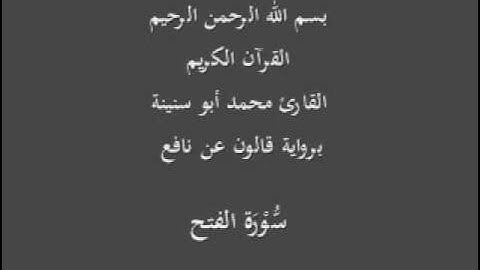 بسم الله الرحمن الرحيم
القرآن الكريم
القارئ محمد أبو سنينة
برواية قالون عن نافع
سُّوْرَة الفتح